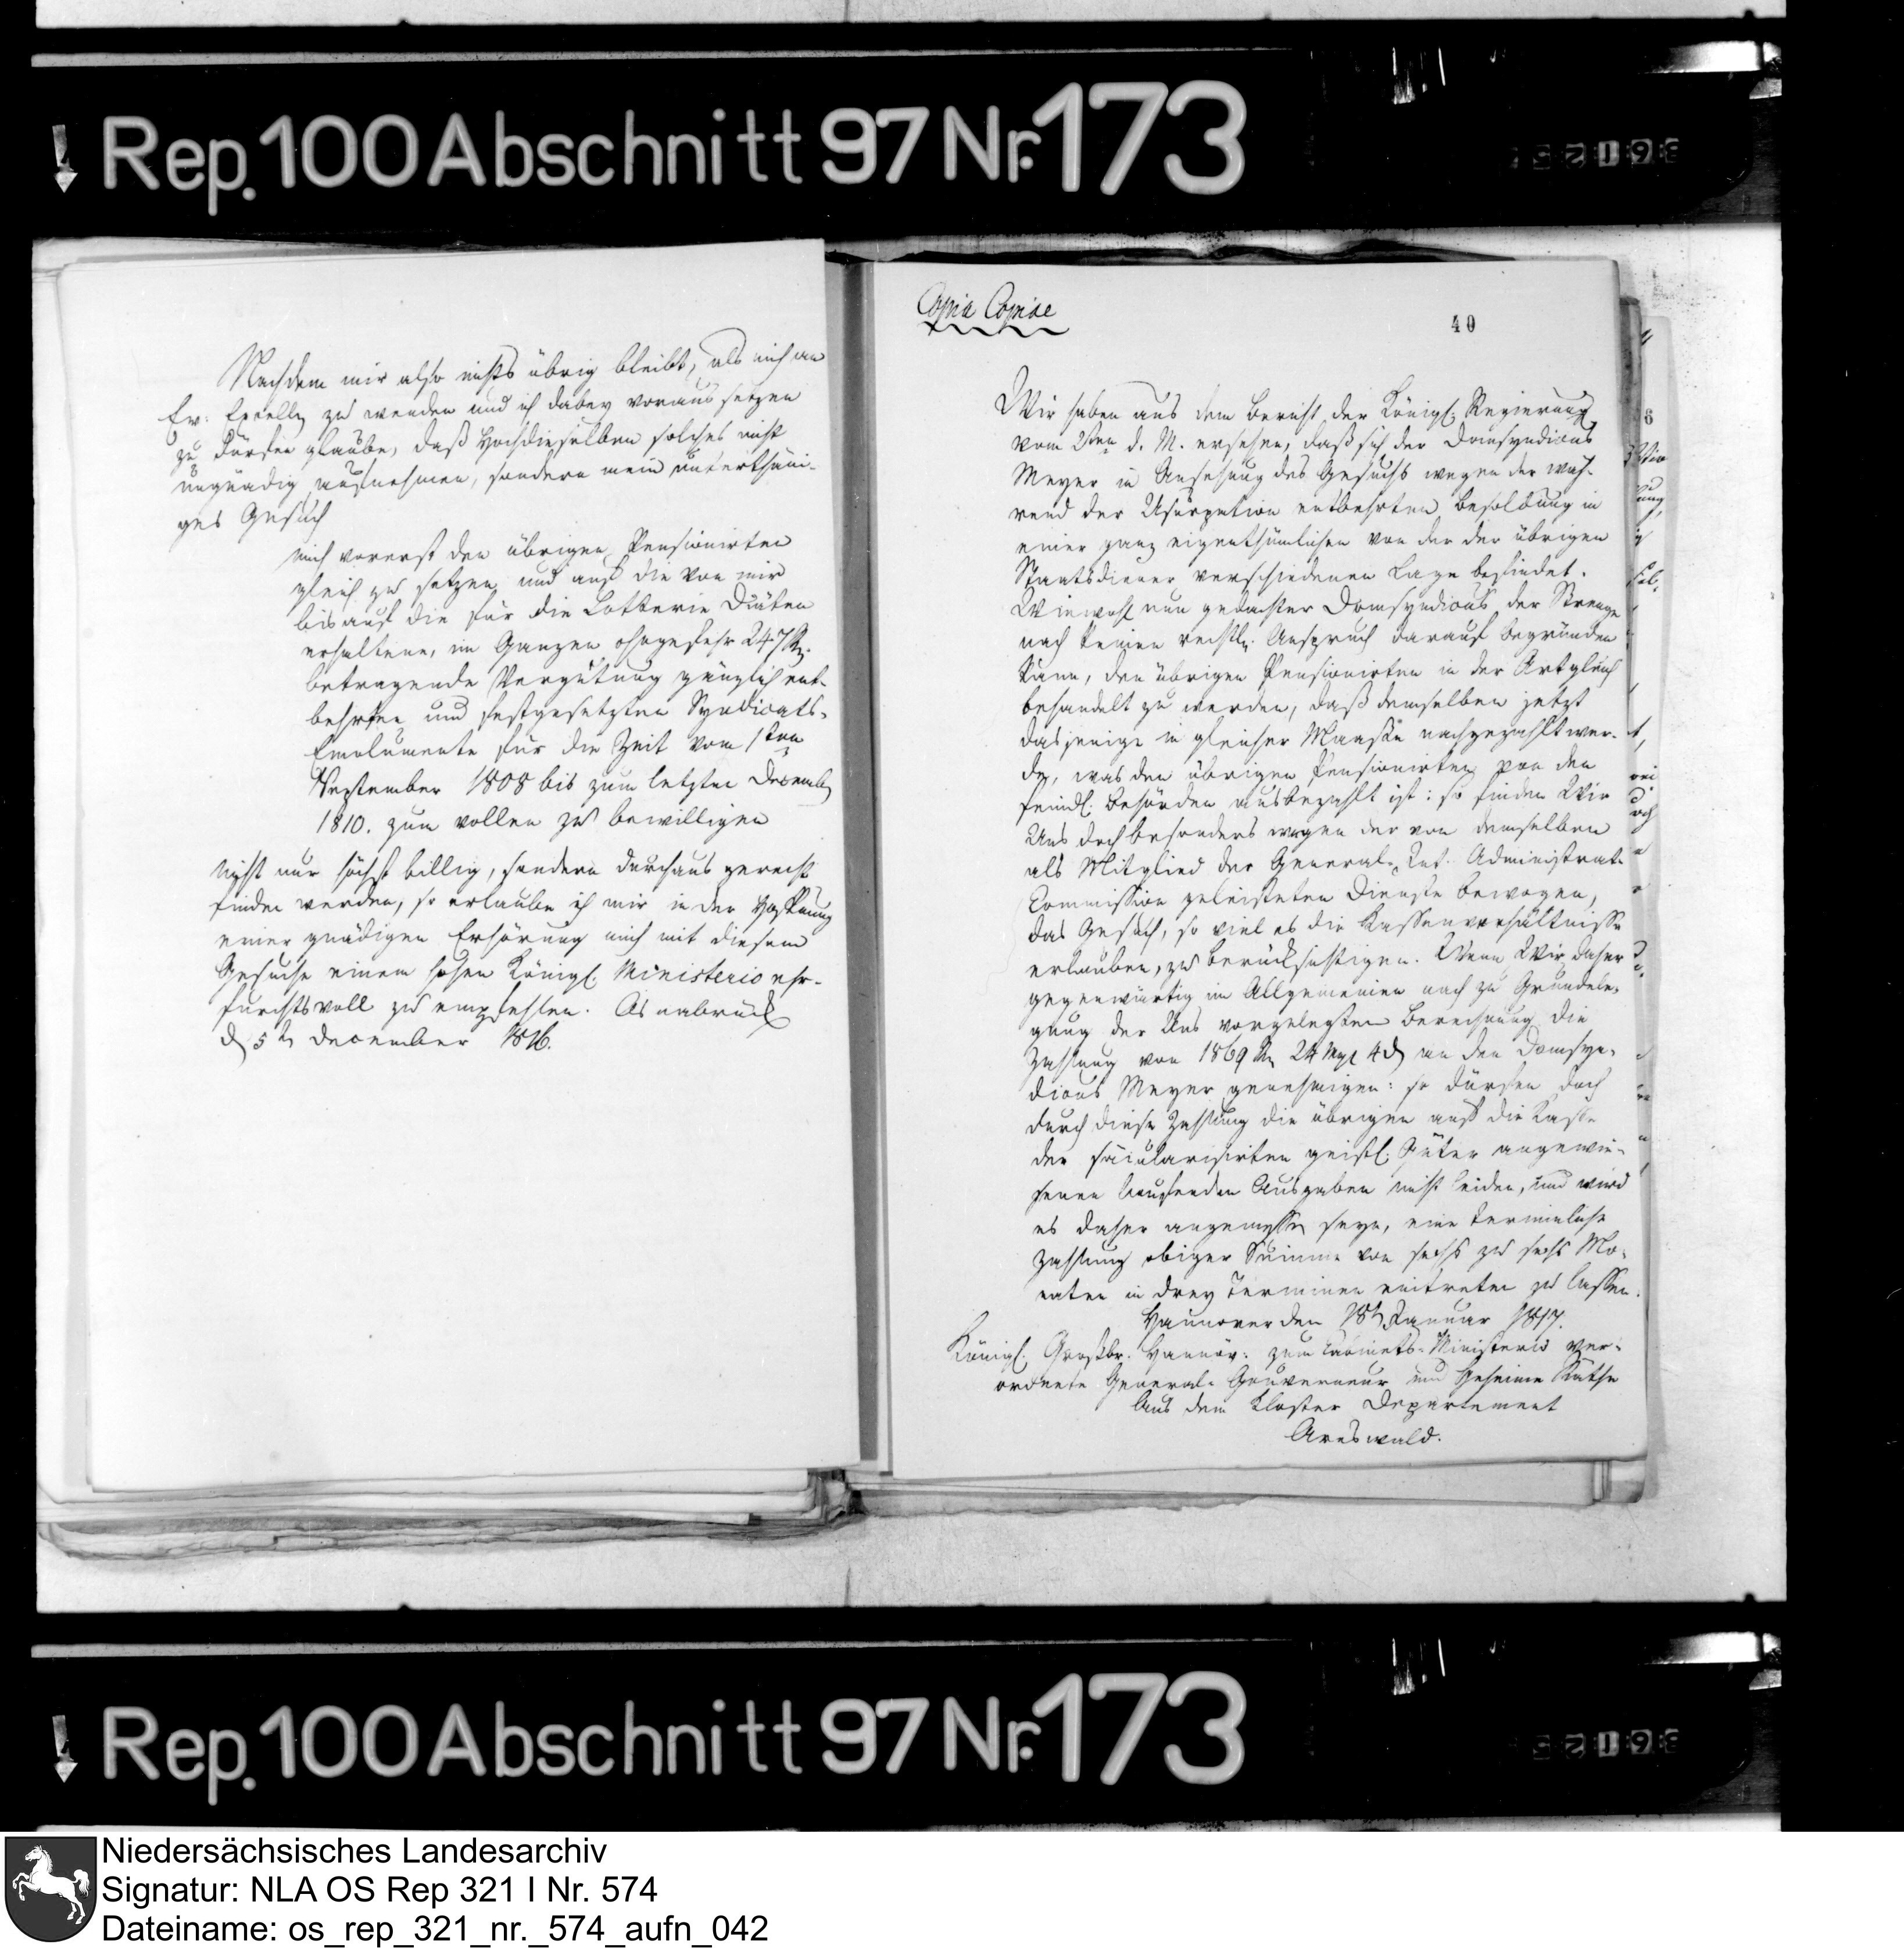 Rep. 100 Abschnitt 97 Nr. 173
Nachdem mir also nichts übrig bleibt, als mich an
Ew. Excellz zu wenden und ich dabey voraus setzen
zu dürfen glaube, daß Hochdieselben solches nicht
ungnädig aufnehmen, sondern mein unterthäni-
ges Gesuch
mich vorerst den übrigen Pensionirten
gleich zu setzen und auf die von mir
bis auf die für die Lotterie Diäten
erhaltene, im Ganzen ohngefehr 247
betragende Vergütung gänzlich ent-
behrten und festgesetzten Syndicats-
Emolumente für die Zeit vom 1sten
September 1808 bis zum letzten Decemb
1810. zum vollen zu bewilligen
nicht nur höchst billig, sondern durchaus gerecht
finden werden, so erlaube ich mir in der Hoffnung
einer gnädigen Erhörung mich mit diesem
Gesuche einem hohen Königl. Ministerio ehr-
furchtsvoll zu empfehlen. Osnabrück
d 5t December 1816.
Copia Copiae
40
Wir haben aus dem Bericht der Königl. Regierung
vom 2ten d. M. ersehen, daß sich der Domsyndicus
Meyer in Ansehung des Gesuchs wegen der wäh-
rend der Usurpation entbehrten Besoldung in
einer ganz eigenthümlichen von der der übrigen
Staatsdiener verschiedenen Lage befindet.
Wiewohl nun gedachter Domsyndicus der Strenge
nach keinen rechtl. Anspruch darauf begründen
kann, den übrigen Pensionirten in der Art gleich
behandelt zu werden, daß demselben jetzt
dasjenige in gleicher Maaße nachgezahlt wer-
de, was den übrigen Pensionirten von den
feindl. Behörden ausbezahlt ist: so finden Wir
Uns doch besonders wegen der von demselben
als Mitglied der General- Int. Administrat.
Commission geleisteten Dienste bewogen,
das Gesuch, so viel es die Kassenverhältnisse
erlauben, zu berücksichtigen. Wenn Wir daher
gegenwärtig im Allgemeinen nach zu Grundele-
gung der Uns vorgelegten Berechnung die
Zahlung von 1869 24 mgl 4 d an den Domsyn-
dicus Meyer genehmigen: so dürfen doch
durch diese Zahlung die übrigen auf die Kasse
der säcularisirten geistl. Güter angewie-
senen laufenden Ausgaben nicht leiden, und wird
es daher angemessen seyn, eine terminliche
Zahlung obiger Summe von sechs zu sechs Mo-
naten in drey Terminen eintreten zu lassen.
Hannover den 18t Januar 1817.
Königl. Großbr. Hannöv. zum Cabinets-Ministerio ver-
ordnete General-Gouverneur und Geheime Räthe
Aus dem Kloster Departement
Arnswald.
Rep. 100 Abschnitt 97 Nr. 173
Niedersächsisches Landesarchiv
Signatur: NLA OS Rep 321 I Nr. 574
Dateiname: os_rep_321_nr._574_aufn_042